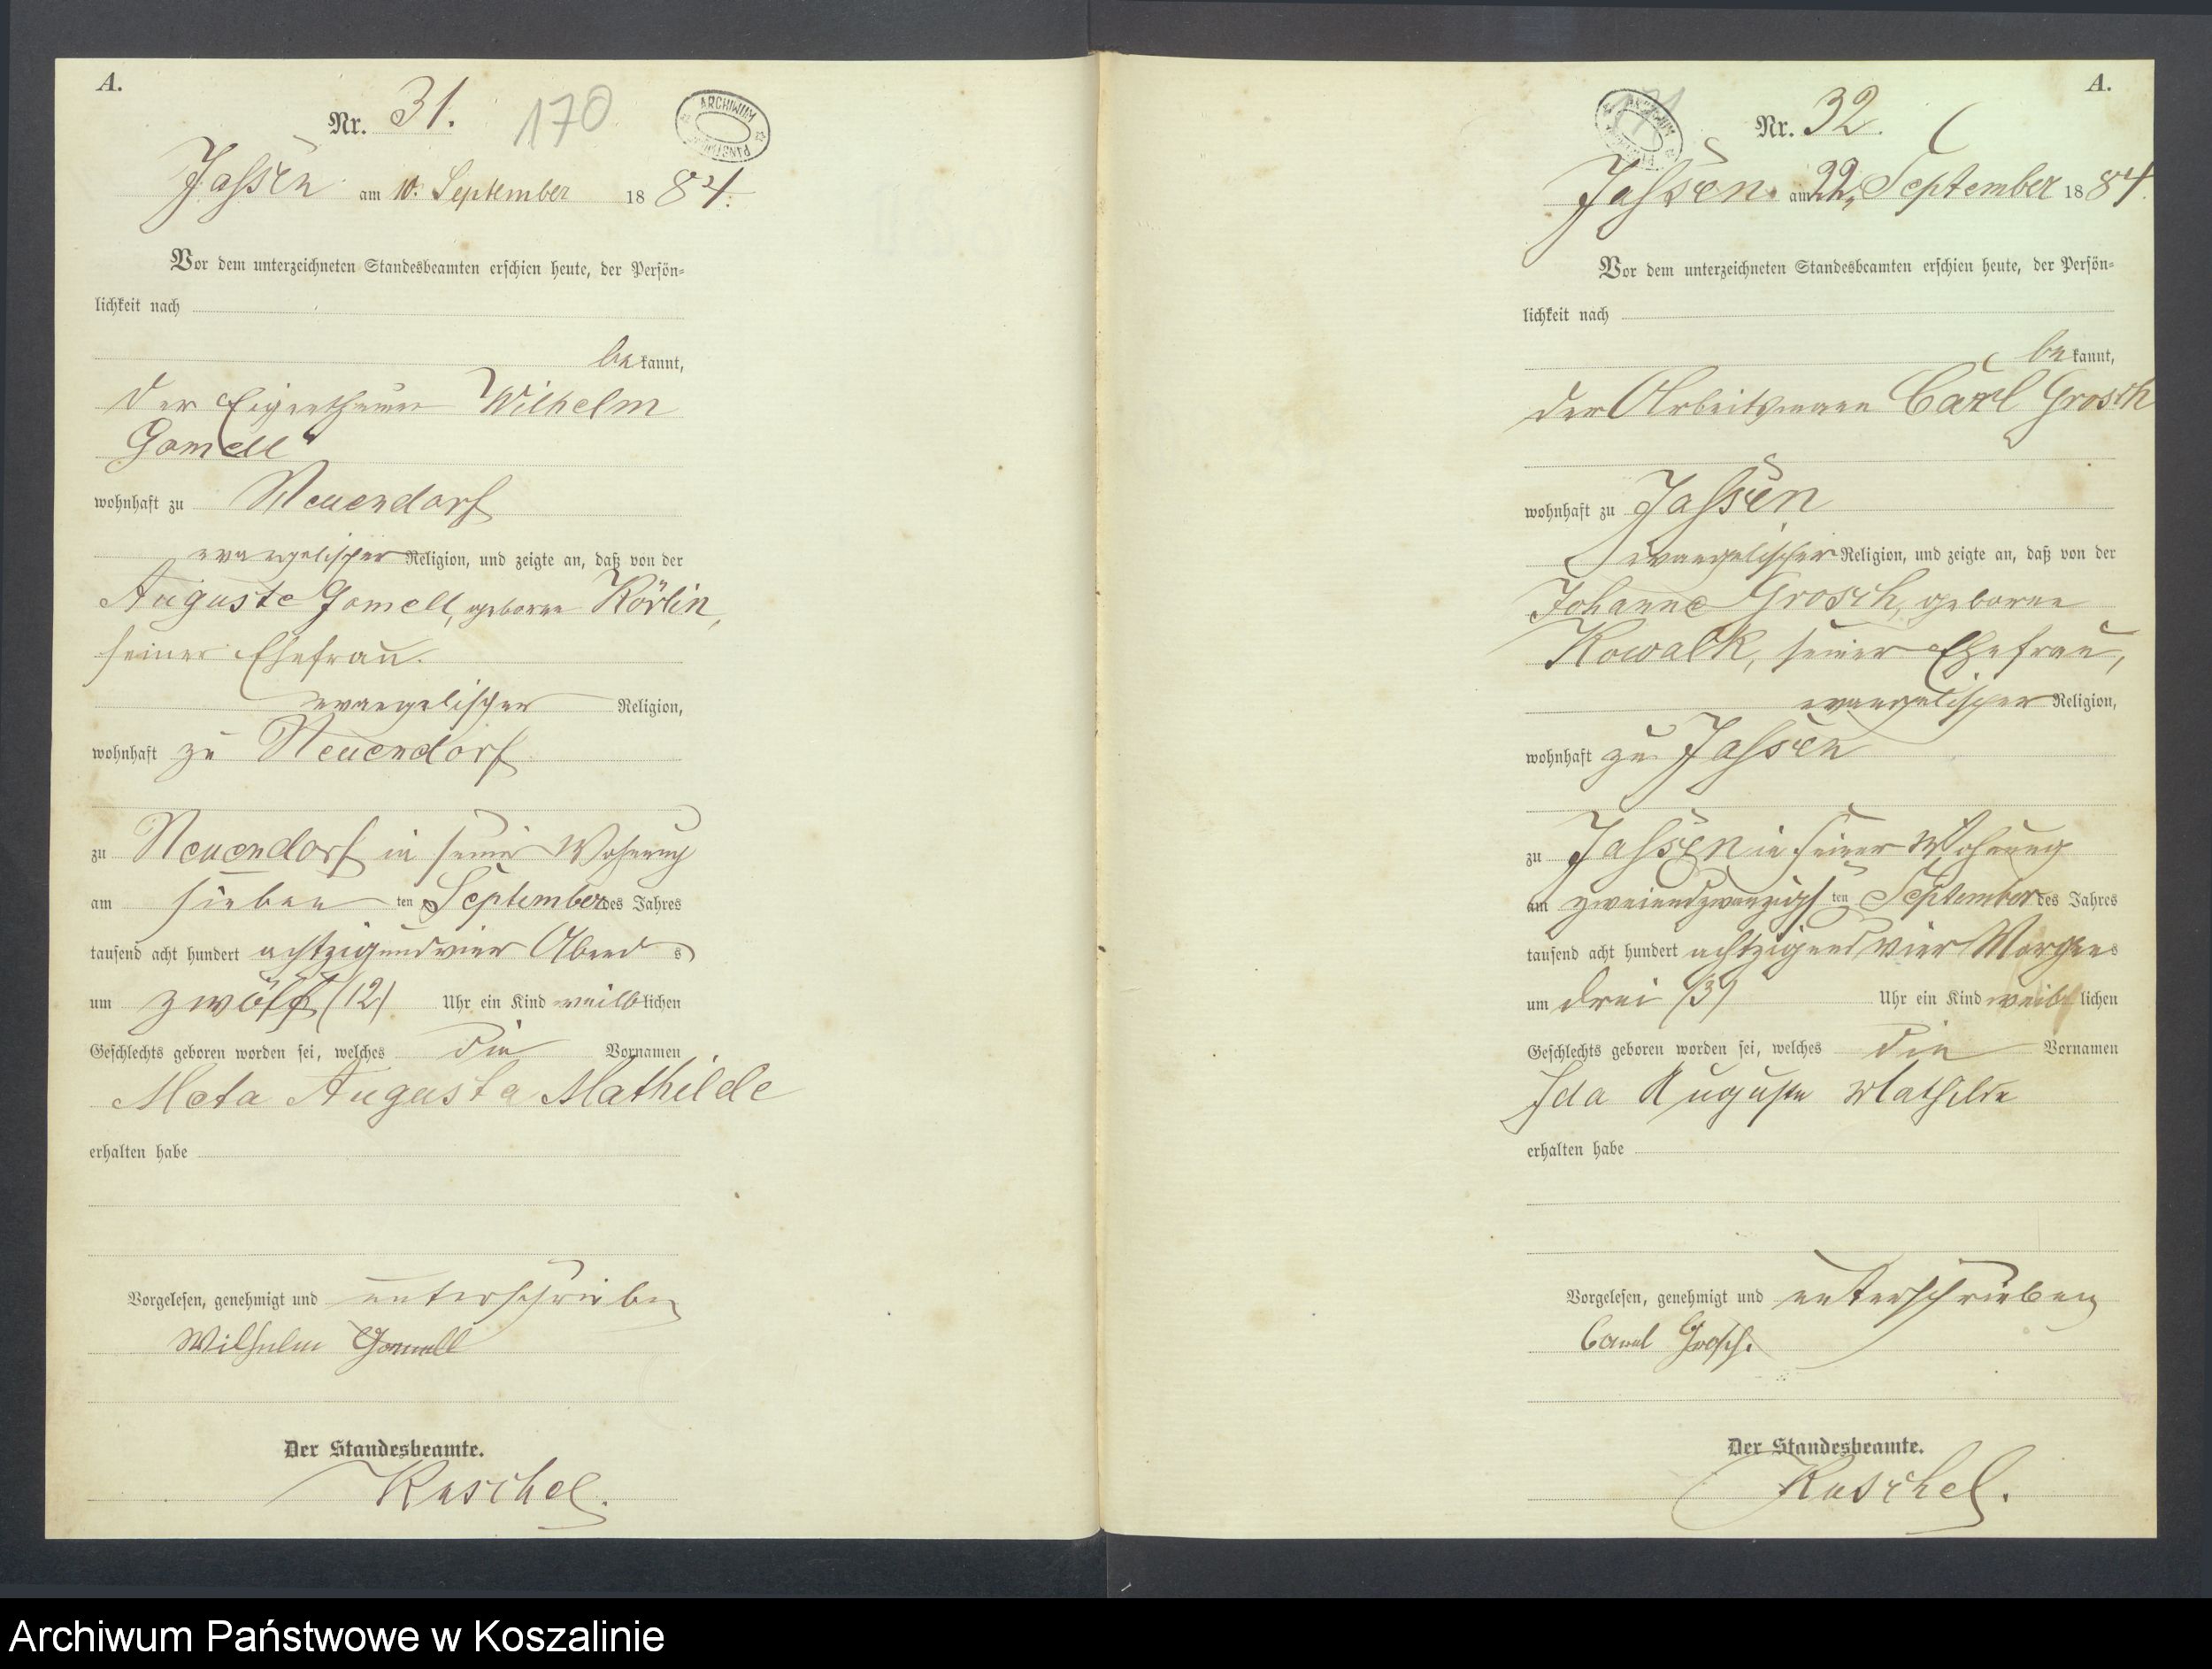 A.
Nr. 31. 170
ARCHIWUM
Jassen am 10. September 1884.
Vor dem unterzeichneten Standesbeamten erschien heute, der Persön=
lichkeit nach
bekannt,
der Eigenthümer Wilhelm
Gomell
wohnhaft zu Neuendorf
evangelischer Religion, und zeigte an, daß von der
Auguste Gomell, geborne Körlin,
seiner Ehefrau.
evangelischer Religion,
wohnhaft zu Neuendorf
zu Neuendorf in seiner Wohnung
am sieben ten September des Jahres
tausend acht hundert achtzigundvier Abends
um zwölf (12) Uhr ein Kind weiblichen
Geschlechts geboren worden sei, welches die Vornamen
Meta Augusta Mathilde
erhalten habe
Vorgelesen, genehmigt und unterschrieben
Wilhelm Gomell
Der Standesbeamte.
Kuschel.
A.
171
Nr. 32.
Jassen. am 22. September 1884.
Vor dem unterzeichneten Standesbeamten erschien heute, der Persön=
lichkeit nach
bekannt,
der Arbeitsmann Carl Grosch
wohnhaft zu Jassen
evangelischer Religion, und zeigte an, daß von der
Johanne Grosch, geborne
Kowalk, seiner Ehefrau,
evangelischer Religion,
wohnhaft zu Jassen
zu Jassen in seiner Wohnung
am zweiundzwanzigsten September des Jahres
tausend acht hundert achtzigund vier Morgens
um drei (3) Uhr ein Kind weiblichen
Geschlechts geboren worden sei, welches die Vornamen
Ida Auguste Mathilde
erhalten habe
Vorgelesen, genehmigt und unterschrieben
Grosch.
Der Standesbeamte.
Kuschel.
Archiwum Państwowe w Koszalinie